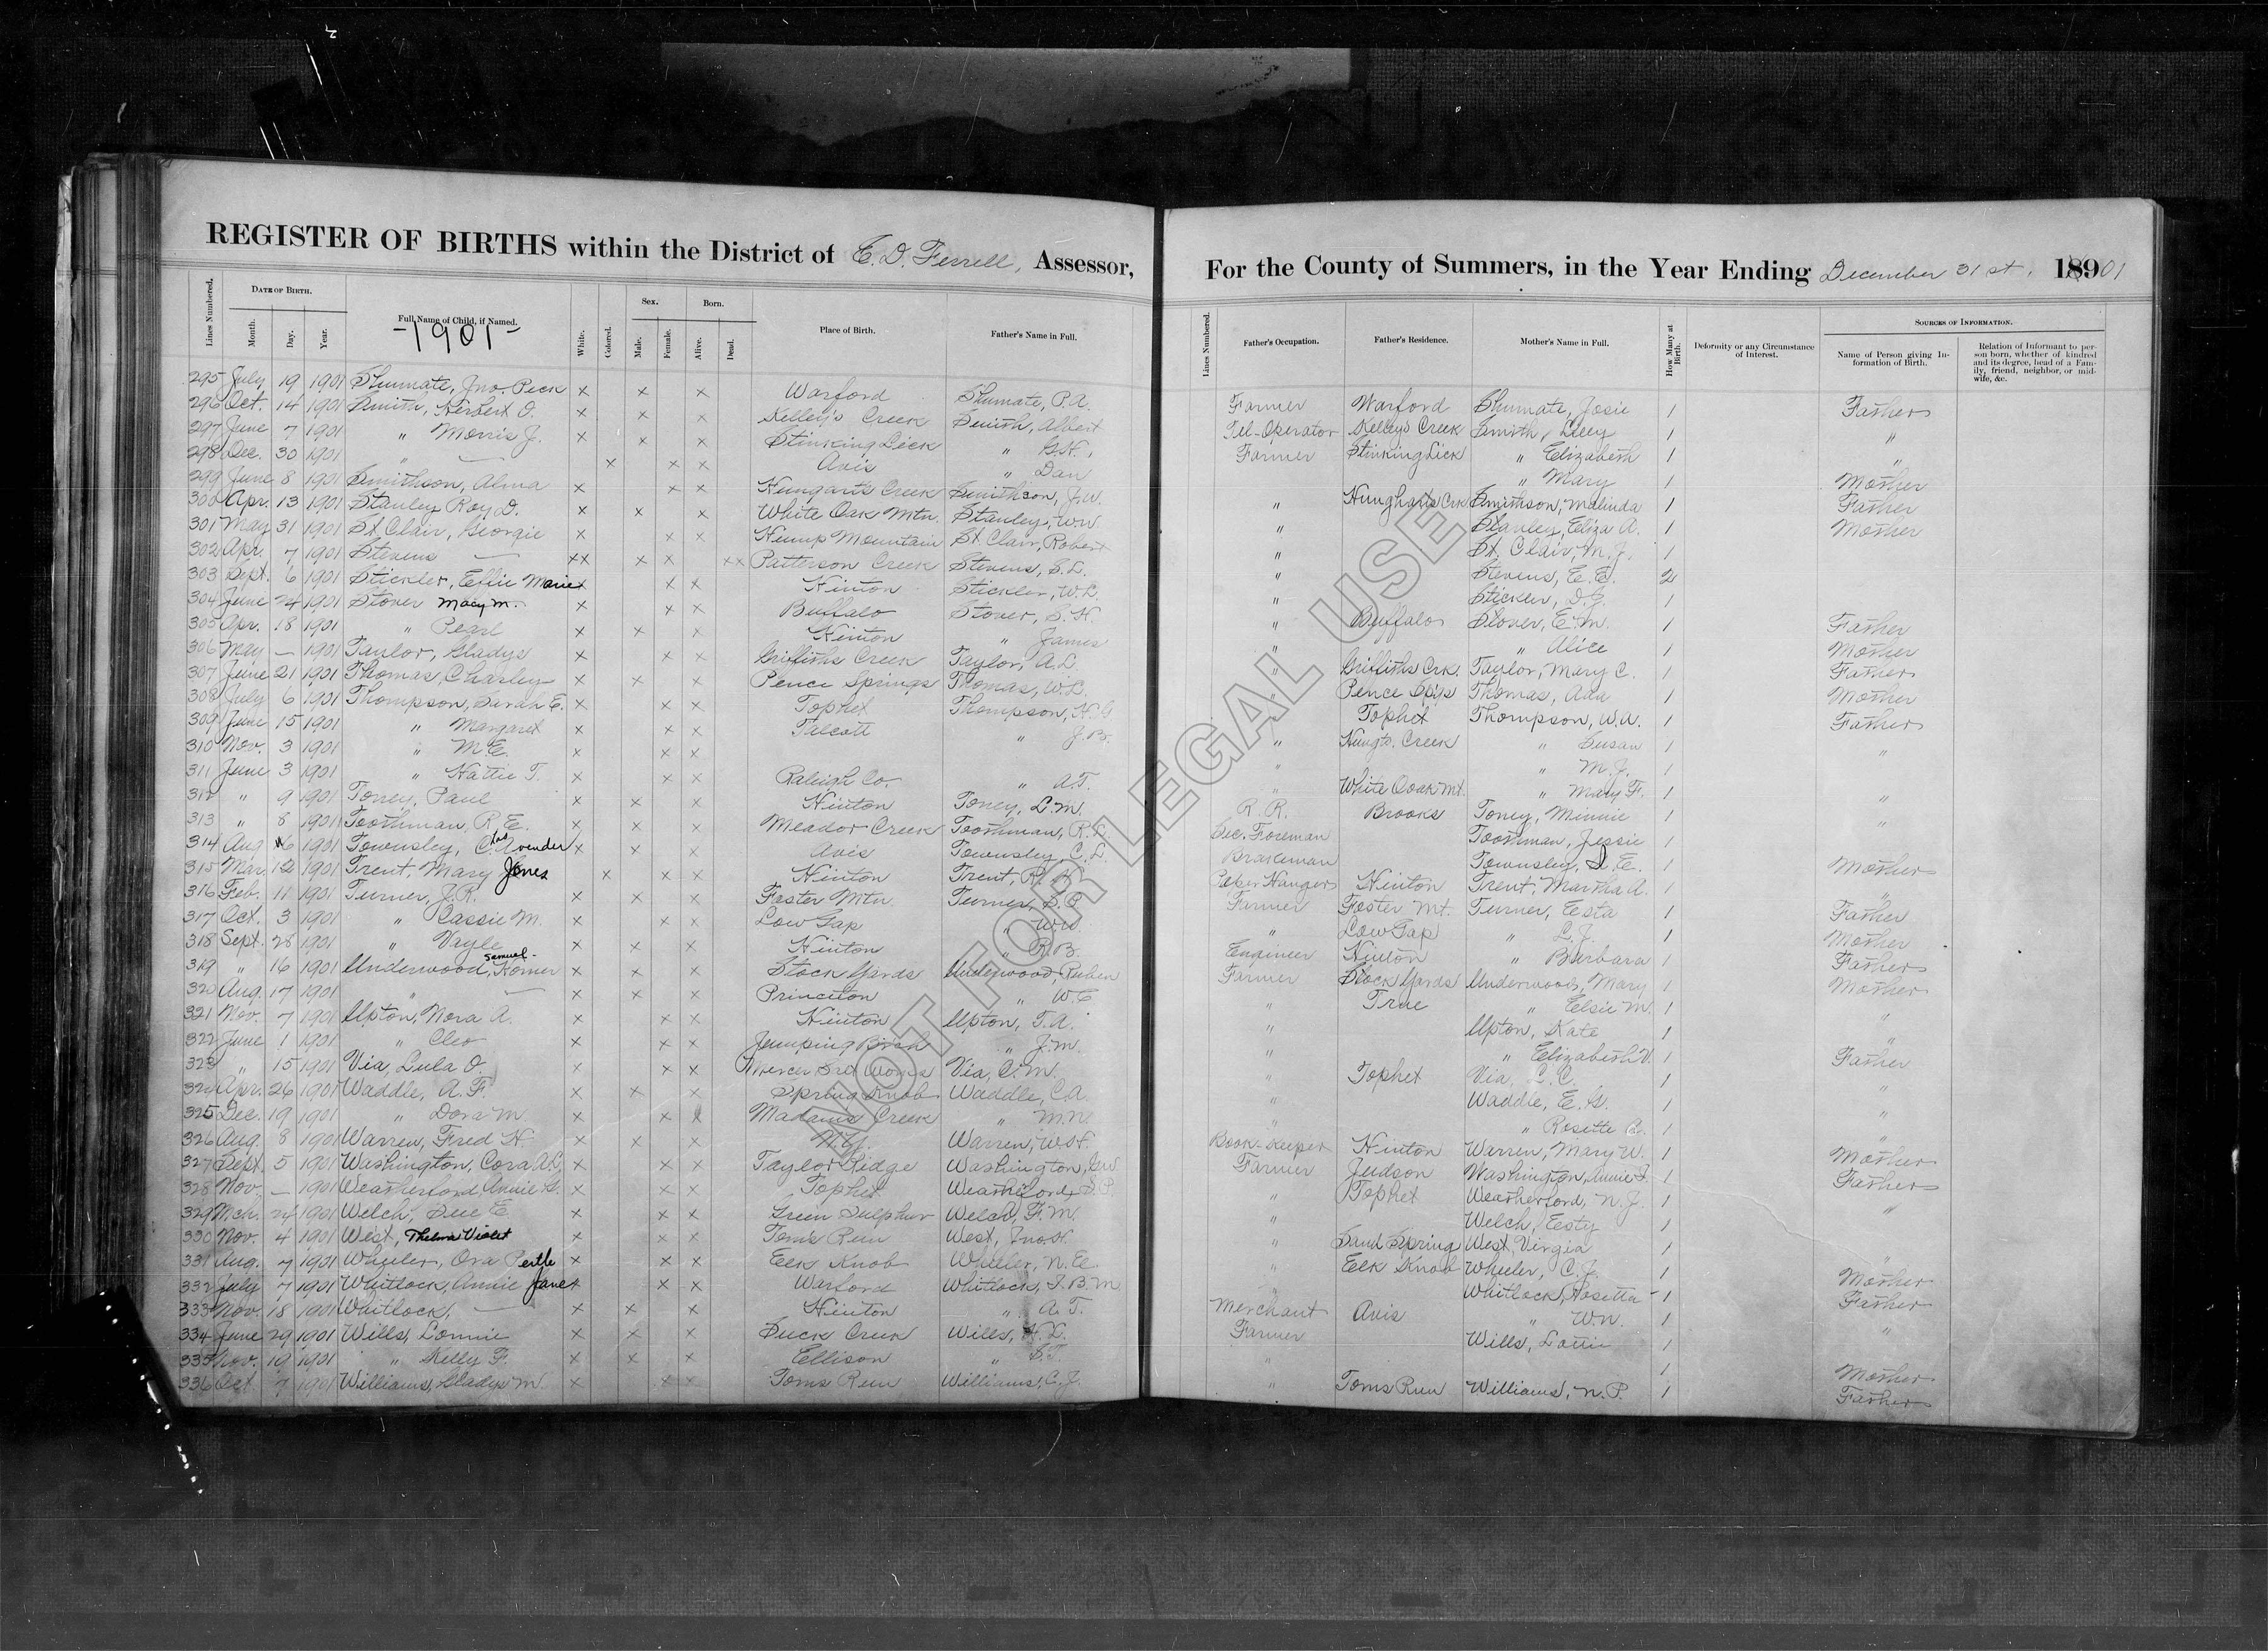 REGISTER OF BIRTHS within the District of E. D. Ferrell, Assessor,
For the County of Summers, in the Year Ending December 31 st, 1901
Lines Numbered. DATE OF BIRTH. Month. Day. Year. Full Name of Child, if Named. White. Colored. Sex. Male. Female. Born. Alive. Dead. Place of Birth. Father's Name in Full.
-1901-
Lines Numbered. Father's Occupation. Father's Residence. Mother's Name in Full. How Many at Birth. Deformity or any Circumstance of Interest. SOURCES OF INFORMATION. Name of Person giving Information of Birth. Relation of Informant to person born, whether of kindred and its degree, head of a Family, friend, neighbor, or midwife, &c.
295 July 19 1901 Shumate, Jno. Peck x x x Warford Shumate, P.A. Farmer Warford Shumate, Josie 1 Father
296 Oct. 14 1901 Smith, Herbert O. x x x Kelley's Creek Smith, Albert Tel-Operator Kelley's Creek Smith, Lucy 1 "
297 June 7 1901 " Morris J. x x x Stinking Lick " G.H. Farmer Stinking Lick " Elizabeth 1 "
298 Dec. 30 1901 " — x x x Avis " Dan " Mary 1 Mother
299 June 8 1901 Smithson, Alma x x x Hungarts Creek Smithson, J.W. " Hungharts Crk Smithson, Malinda 1 Father
300 Apr. 13 1901 Stanley, Roy D. x x x White Oak Mtn. Stanley, W.W. " Stanley, Eliza A. 1 Mother
301 May 31 1901 St. Clair, Georgie x x x Hump Mountain St. Clair, Robert " St. Clair, M.J. 1
302 Apr. 7 1901 Stevens — xx x x xx Patterson Creek Stevens, S.L. " Stevens, E.E. 2
303 Sept. 6 1901 Stickler, Effie Marie x x x Hinton Stickler, W.L. " Stickler, D.J. 1
304 June 24 1901 Stover Macy M. x x x Buffalo Stover, S.H. " Buffalo Stover, E.M. 1 Father
305 Apr. 18 1901 " Pearl x x x Hinton " James " " Alice 1 Mother
306 May — 1901 Taylor, Gladys x x x Griffiths Creek Taylor, A.L. " Griffiths Crk. Taylor, Mary C. 1 Father
307 June 21 1901 Thomas, Charley x x x Pence Springs Thomas, W.L. " Pence Sp'gs Thomas, Ada 1 Mother
308 July 6 1901 Thompson, Sarah E. x x x Tophet Thompson, H.G. Tophet Thompson, W.A. 1 Father
309 June 15 1901 " Margaret x x x Talcott " J.B. " Hungts. Creek " Susan 1 "
310 Nov. 3 1901 " M.E. x x x " " M.J. 1
311 June 3 1901 " Hattie T. x x x Raleigh Co. " A.T. " White Oak Mt. " Mary F. 1 "
312 " 9 1901 Toney, Paul x x x Hinton Toney, L.M. R.R. Brooks Toney, Minnie 1 "
313 " 8 1901 Toothman, R.E. x x x Meador Creek Toothman, R.L. Sec. Foreman Toothman, Jessie 1
314 Aug 16 1901 Townsley, Chas Avender x x x Avis Townsley, C.L. Brakeman Townsley, S.E. 1 Mother
315 Mar. 12 1901 Trent, Mary Jones x x x Hinton Trent, R.H. Paper Hanger Hinton Trent, Martha A. 1 "
316 Feb. 11 1901 Turner, J.R. x x x Foster Mtn. Turner, S.P. Farmer Foster Mt. Turner, Esta 1 Father
317 Oct. 3 1901 " Cassie M. x x x Low Gap " W.W. " Low Gap " L.J. 1 Mother
318 Sept. 28 1901 " Vayle x x x Hinton " R.B. Engineer Hinton " Barbara 1 Father
319 " 16 1901 Underwood, Samuel Homer x x x Stock Yards Underwood, Ruben Farmer Stock Yards Underwood, Mary 1 Mother
320 Aug. 17 1901 " — x x x Princeton " W.C. " True " Elsie M. 1 "
321 Nov. 7 1901 Upton, Nora A. x x x Hinton Upton, T.A. " Upton, Kate 1
322 June 1 1901 " Cleo x x x Jumping Branch " J.M. " " Elizabeth V. 1 Father
323 " 15 1901 Via, Lula O. x x x Mercer Via, C.M. " Tophet Via, L.C. 1 "
324 Apr. 26 1901 Waddle, A.F. x x x Spring Knob Waddle, C.A. " Waddle, E.G. 1 "
325 Dec. 19 1901 " Dora M x x x Madams Creek " M.N. " " Rosette C. 1 "
326 Aug. 8 1901 Warren, Fred H x x x N.Y. Warren, W.H. Book-Keeper Hinton Warren, Mary W. 1 Mother
327 Sept. 5 1901 Washington, Cora A.L. x x x Taylor Ridge Washington, Geo. Farmer Judson Washington, Annie F. 1 Father
328 Nov. — 1901 Weatherford, Annie G. x x x Tophet Weatherford, S.P. " Tophet Weatherford, N.J. 1 "
329 Mch. 24 1901 Welch, Sue E. x x x Green Sulphur Welch, F.M. " Welch, Esty 1
330 Nov. 4 1901 West, Thelma Violet x x x Toms Run West, Jno. H. " Sand Spring West, Virgia 1 "
331 Aug. 7 1901 Wheeler, Ora Pertle x x x Elk Knob Wheeler, N.E. " Elk Knob Wheeler, C.J. 1 Mother
332 July 7 1901 Whitlock, Annie Jane x x x Warford Whitlock, T.B.M. " Whitlock, Rosetta 1 Father
333 Nov. 18 1901 Whitlock, — x x x Hinton " A.T. Merchant Avis " W.N. 1 "
334 June 29 1901 Wills, Lonnie x x x Suck Creek Wills, H.L. Farmer Wills, Lottie 1
335 Nov. 19 1901 " Kelly F. x x x Ellison " S.T. " 1 Mother
336 Oct. 7 1901 Williams, Gladys M x x x Toms Run Williams, C.J. " Toms Run Williams, N.P. 1 Father
NOT FOR LEGAL USE